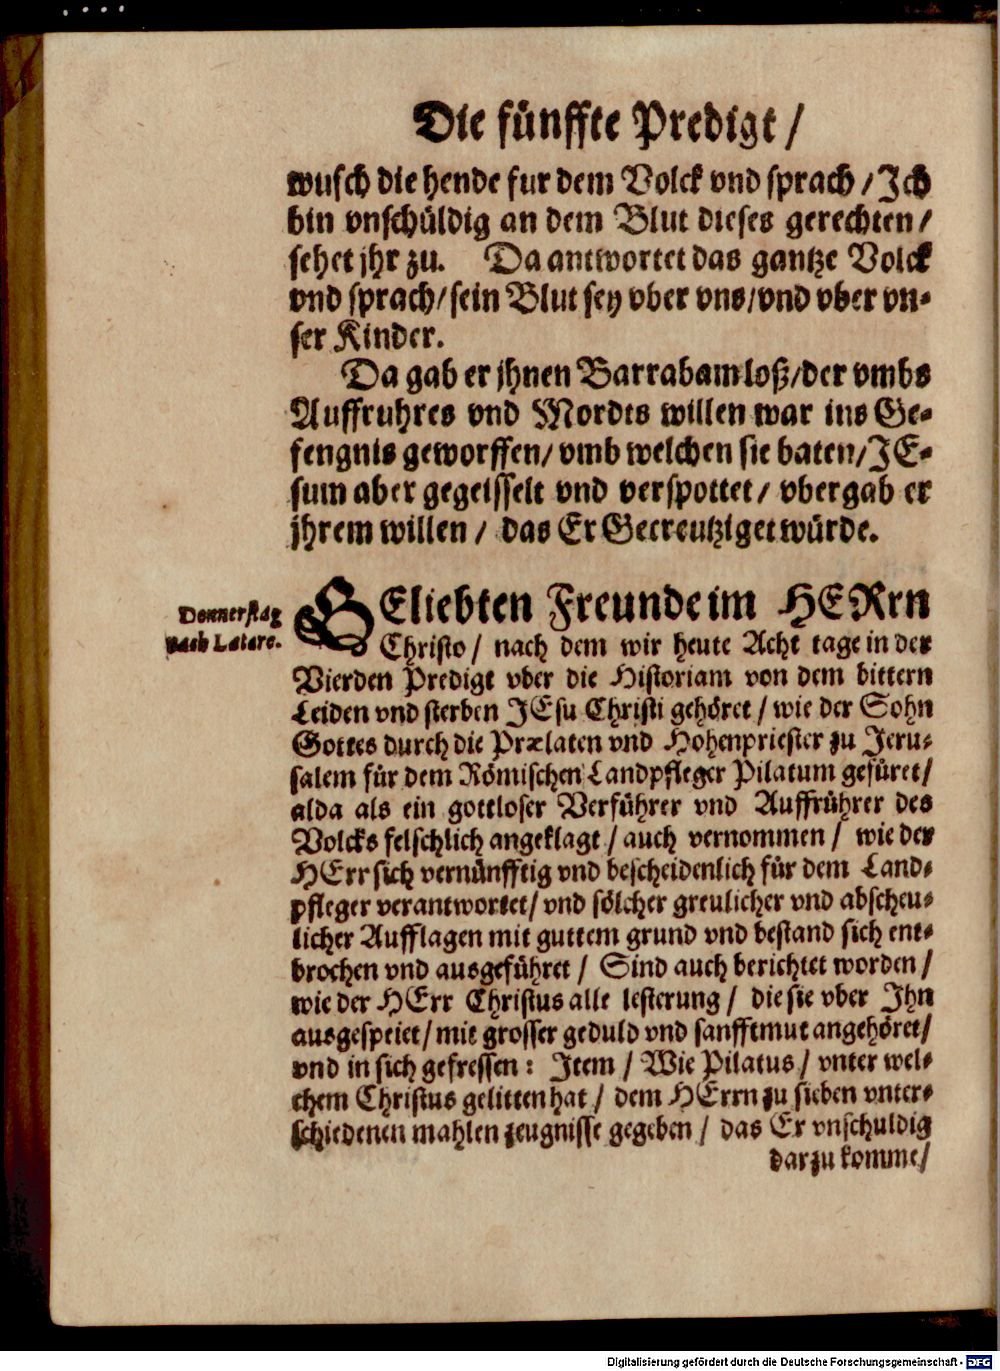 Die fünffte Predigt /
wusch die hende fur dem Volck vnd sprach / Ich
bin vnschüldig an dem Blut dieses gerechten /
sehet jhr zu. Da antwortet das gantze Volck
vnd sprach / sein Blut sey vber vns / vnd vber vn-
ser Kinder.
Da gab er jhnen Barrabam loß / der vmbs
Auffruhres vnd Mordts willen war ins Ge-
fengnis geworffen / vmb welchen sie baten / JE-
sum aber gegeisselt vnd verspottet / vbergab er
jhrem willen / das Er Gecreutziget würde.
Donnerstag
nach Lætare.
GEliebten Freunde im HERrn
Christo / nach dem wir heute Acht tage in der
Vierden Predigt vber die Historiam von dem bittern
Leiden vnd sterben JEsu Christi gehöret / wie der Sohn
Gottes durch die Prælaten vnd Hohenpriester zu Jeru-
salem für dem Römischen Landpfleger Pilatum gefüret /
alda als ein gottloser Verführer vnd Auffrührer des
Volcks felschlich angeklagt / auch vernommen / wie der
HErr sich vernünfftig vnd bescheidenlich für dem Land-
pfleger verantwortet / vnd sölcher greulicher vnd abscheu-
licher Aufflagen mit guttem grund vnd bestand sich ent-
brochen vnd ausgeführet / Sind auch berichtet worden /
wie der HErr Christus alle lesterung / die sie vber Ihn
ausgespeiet / mit grosser geduld vnd sanfftmut angehöret /
vnd in sich gefressen : Item / Wie Pilatus / vnter wel-
chem Christus gelitten hat / dem HErrn zu sieben vnter-
schiedenen mahlen zeugnisse gegeben / das Er vnschuldig
darzu komme /
Digitalisierung gefördert durch die Deutsche Forschungsgemeinschaft - DFG